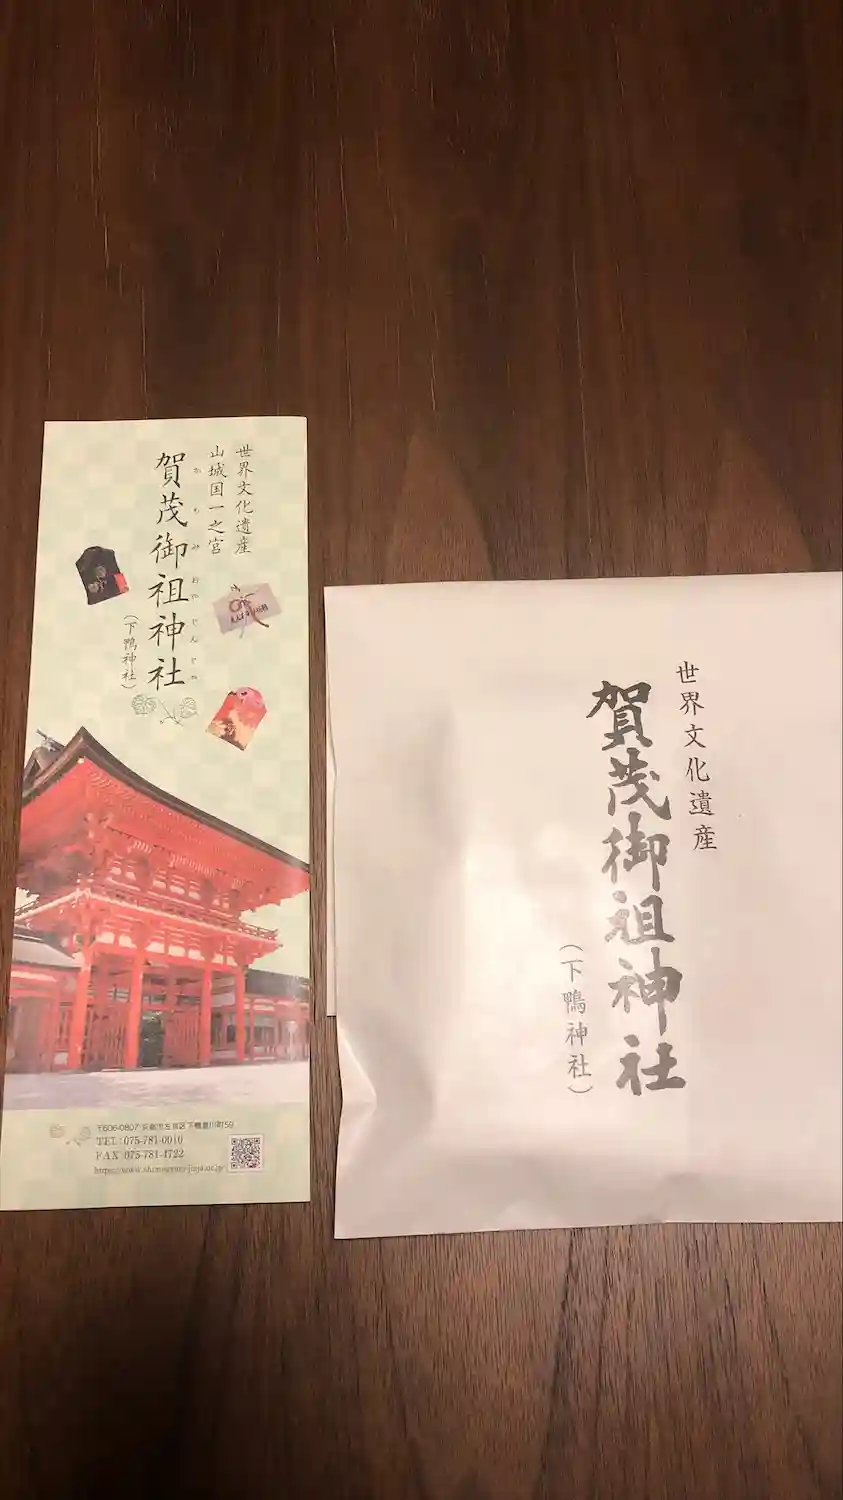 世界文化遺産
山城国一之宮
賀茂御祖神社
かもみおやじんじゃ
(下鴨神社)
〒606-0807 京都市左京区下鴨泉川町59
TEL:075-781-0010
FAX 075-781-4722
世界文化遺産
賀茂御祖神社
(下鴨神社)